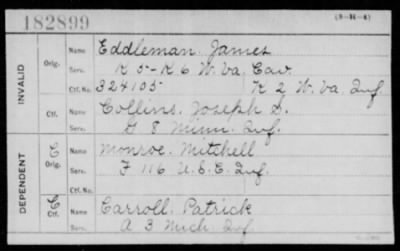 182899
(3-H-4)
INVALID
Orig. Name Eddleman, James
Serv. K 5- K 6 W. Va. Cav.
Ctf. No. 324105 K 2 W. Va. Inf.
Ctf. Name Collins, Joseph D.
Serv. G 8 Minn. Inf.
DEPENDENT
C Orig. Name Monroe, Mitchell
Serv. F 116 U.S.C. Inf.
Ctf. No.
C Ctf. Name Carroll, Patrick
Serv. A 3 Mich. Inf.